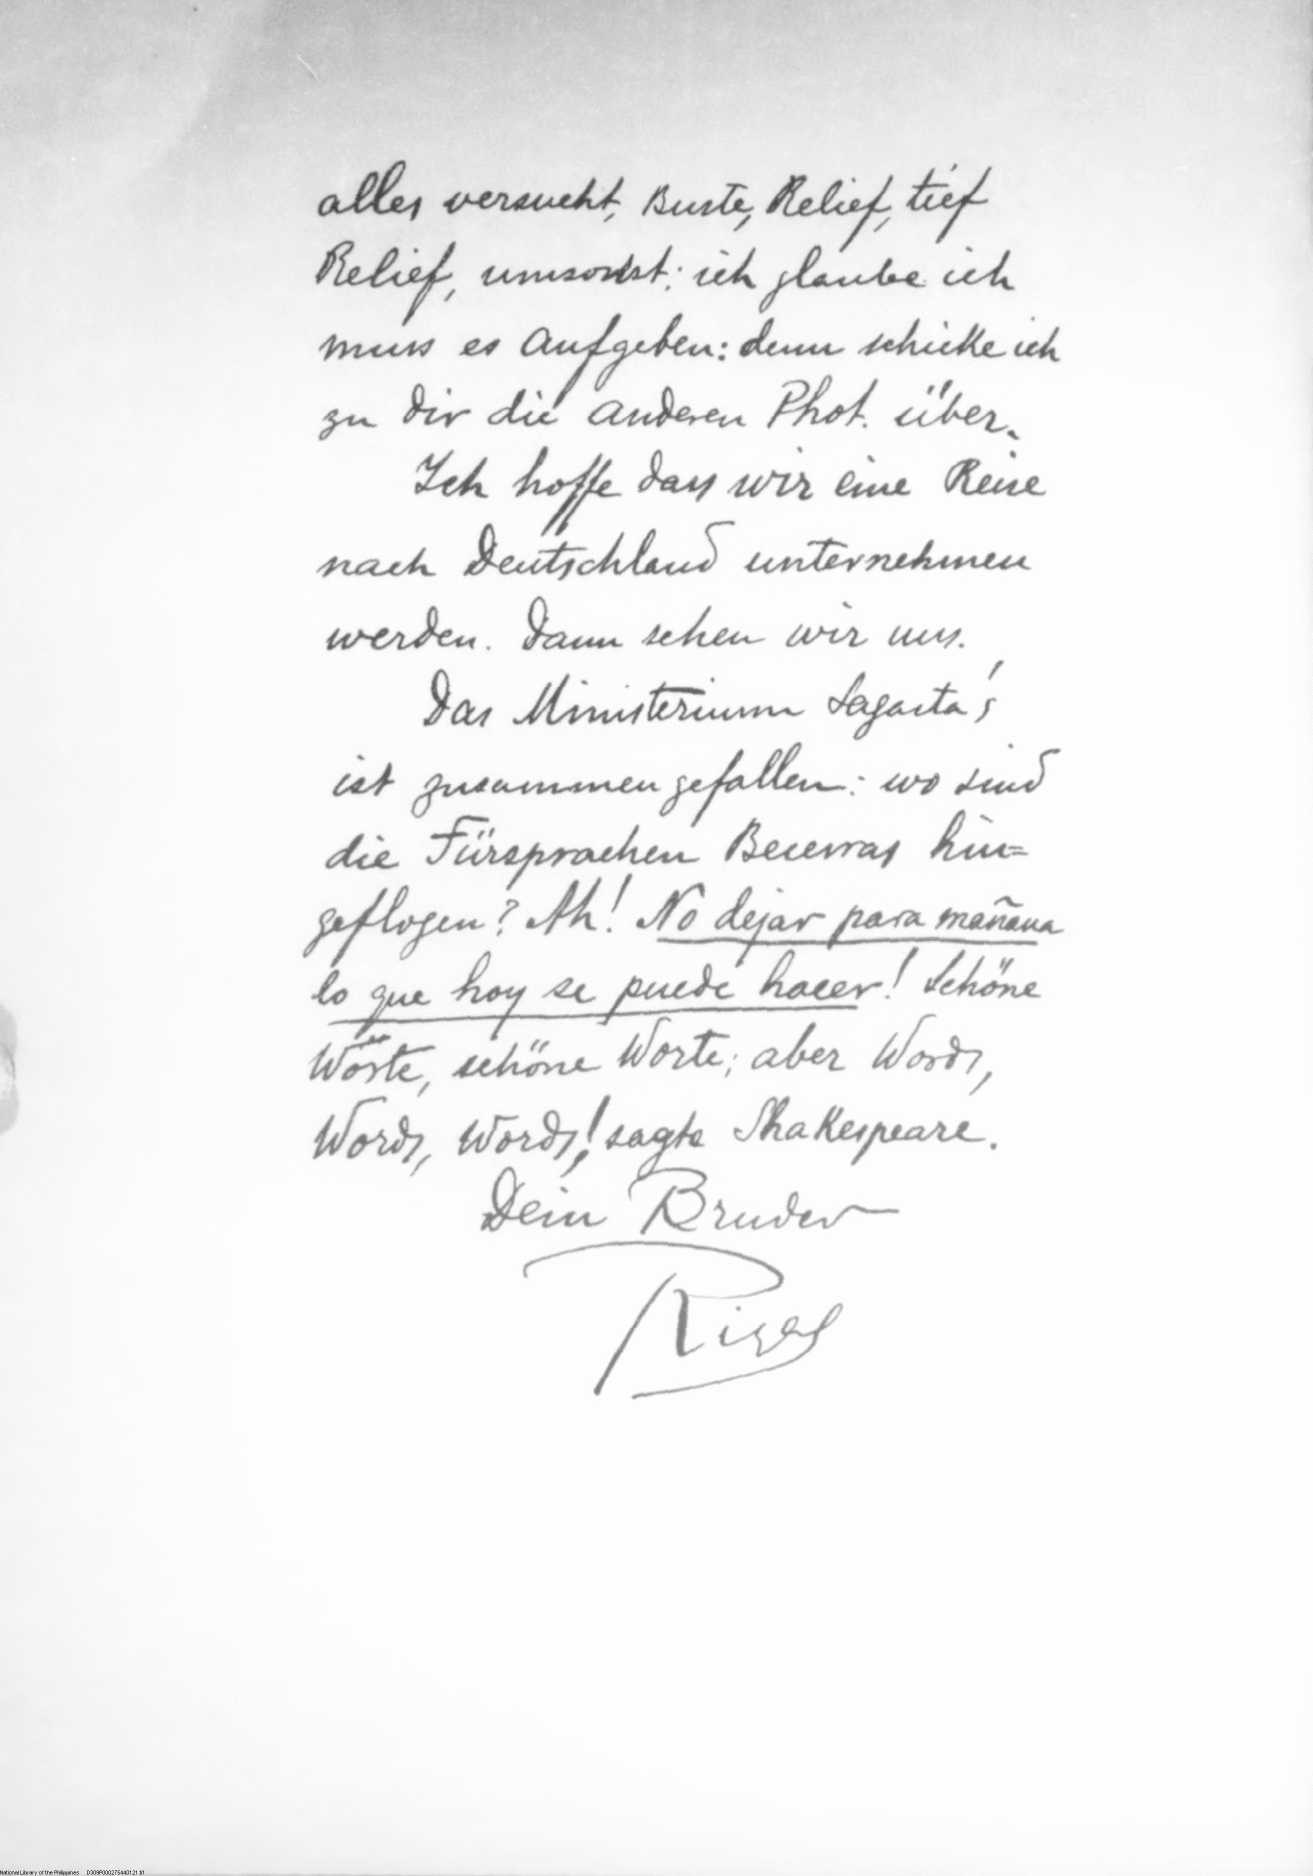 alles versucht, Buste, Relief, tief
Relief, umsonst; ich glaube ich
muss es aufgeben: denn schicke ich
zu dir die anderen Phot. über.
Ich hoffe dass wir eine Reise
nach Deutschland unternehmen
werden. Dann sehen wir uns.
Das Ministerium Sagasta's
ist zusammengefallen: wo sind
die Fürsprachen Becerras hin=
geflogen? Ah! No dejar para mañana
lo que hoy se puede hacer! Schöne
Wörte, schöne Worte; aber Words,
Words, Words! sagte Shakespeare.
Dein Bruder
Rizal
National Library of the Philippines